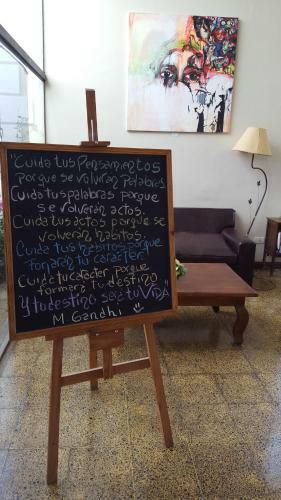 "Cuida tus Pensamientos
porque se volveran Palabras.
Cuida tus palabras porque
se volverán actos.
Cuida tus actos porque se
volverán habitos.
Cuida tus habitos porque
forjarán tu carácter.
Cuida tu carácter porque
formará tu destino
Y tu destino será tu Vida"
M Gandhi